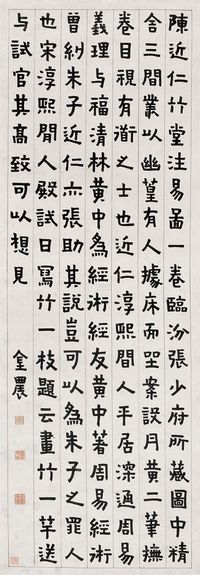 陳近仁竹堂注易啚一卷臨汾張少府所藏圖中精
舍三間叢以幽篁有人據床而坐案設丹黃二筆撫
卷目視有衜之士也近仁淳熙間人平居深通周易
義理与福清林黃中為經術經友黃中著周易經術
曾糾朱子近仁亦張助其說豈可以為朱子之罪人
也宋淳熙間人殿試日寫竹一枝題云畫竹一竿送
与試官其高致可以想見 金農